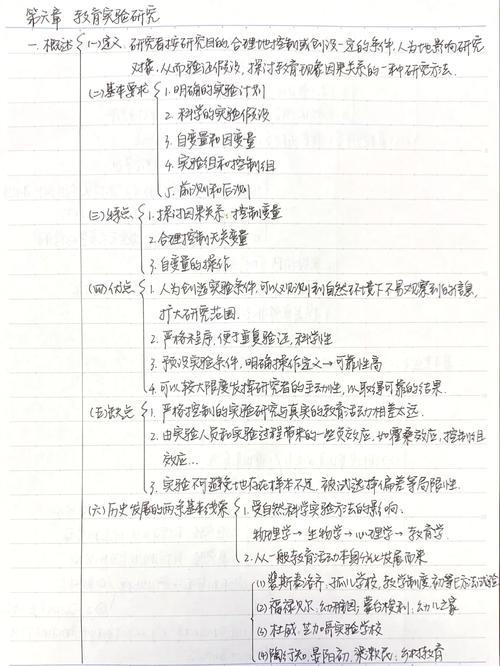 第六章 教育实验研究
一.概述 (一)定义.研究者按研究目的,合理地控制或创设一定的条件,人为地影响研究
对象,从而验证假设,探讨教育现象因果关系的一种研究方法.
(二)基本要求 1.明确的实验计划
2.科学的实验假设
3.自变量和因变量
4.实验组和控制组
5.前测和后测
(三)特点 1.探讨因果关系;控制变量
2.合理控制无关变量
3.自变量的操作
(四)优点 1.人为创造实验条件,可以观测到自然环境下不易观察到的信息,
扩大研究范围.
2.严格程序,便于重复验证,科学性
3.预设实验条件,明确操作定义→可靠性高
4.可以较大限度发挥研究者的主动性,以取得可靠的结果.
(五)缺点 1.严格控制的实验研究与真实的教育活动相差太远.
2.由实验人员和实验过程带来的一些负效应,如霍桑效应,控制组
效应...
3.实验不可避免地存在样本不足,被试选择偏差等局限性.
(六)历史发展的两条基本线索 1.受自然科学实验方法的影响:
物理学→生物学→心理学→教育学.
2.从一般教育活动本身分化发展而来
(1)裴斯泰洛齐:孤儿学校,教学制度、初等教育方法试验
(2)福禄贝尔:幼稚园;蒙台梭利:幼儿之家
(3)杜威:芝加哥实验学校
(4)陶行知、晏阳初、梁漱溟:乡村教育